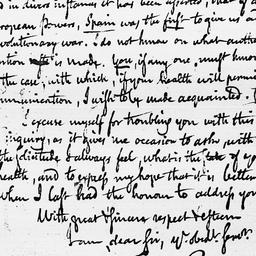 d in divers instances it has been asserted, that of a
ropean powers, Spain was the first to give us a
volutionary war. I do not know on what autho
tion is made. You, if any one, must know
the case, with which, if your health will permi
mmunication, I wish to be made acquainted.
excuse myself for troubling you with this
inquiry, as it gives me occasion to ask, with
the solicitude I always feel, what is the state of yo
health, and to express my hope that it is better
when I last had the honour to address you
With great & sincere respect & esteem
I am, dear Sir, yr obedt. servt.